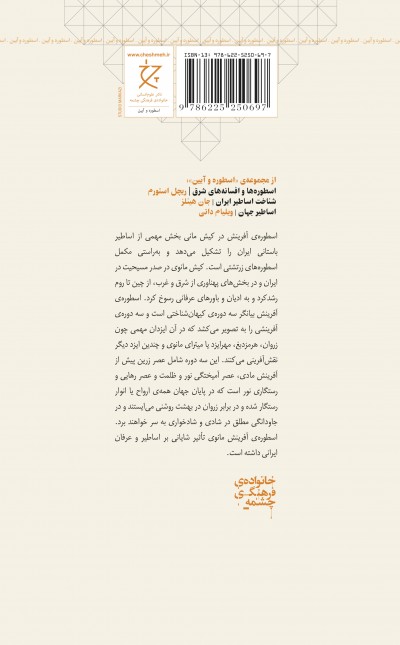 اسطوره و آیین . اسطوره و آیین . اسطوره و آیین . اسطوره و آیین . اسطوره و آیین
www.cheshmeh.ir
نشر چشمه
خانواده‌ی فرهنگی چشمه
اسطوره و آیین
ISBN-13: 978-622-5250-69-7
9 786225 250697
از مجموعه‌ی «اسطوره و آیین»:
اسطوره‌ها و افسانه‌های شرق | ریچل استورم
شناخت اساطیر ایران | جان هینلز
اساطیر جهان | ویلیام داتی
اسطوره‌ی آفرینش در کیش مانی بخش مهمی از اساطیر
باستانی ایران را تشکیل می‌دهد و به‌راستی مکمل
اسطوره‌های زرتشتی است. کیش مانوی در صدر مسیحیت در
ایران و در بخش‌های پهناوری از شرق و غرب، از چین تا روم
رشد کرد و به ادیان و باورهای عرفانی رسوخ کرد. اسطوره‌ی
آفرینش بیانگر سه دوره‌ی کیهان‌شناختی است و سه دوره‌ی
آفرینشی را به تصویر می‌کشد که در آن ایزدان مهمی چون
زروان، هرمزدبغ، مهرایزد یا میترای مانوی و چندین ایزد دیگر
نقش‌آفرینی می‌کنند. این سه دوره شامل عصر زرین پیش از
آفرینش مادی، عصر آمیختگی نور و ظلمت و عصر رهایی و
رستگاری نور است که در پایان جهان همه‌ی ارواح یا انوار
رستگار شده و در برابر زروان در بهشت روشنی می‌ایستند و در
جاودانگی مطلق در شادی و شادخواری به سر خواهند برد.
اسطوره‌ی آفرینش مانوی تأثیر شایانی بر اساطیر و عرفان
ایرانی داشته است.
خانواده‌ی
فرهنگی
چشمه